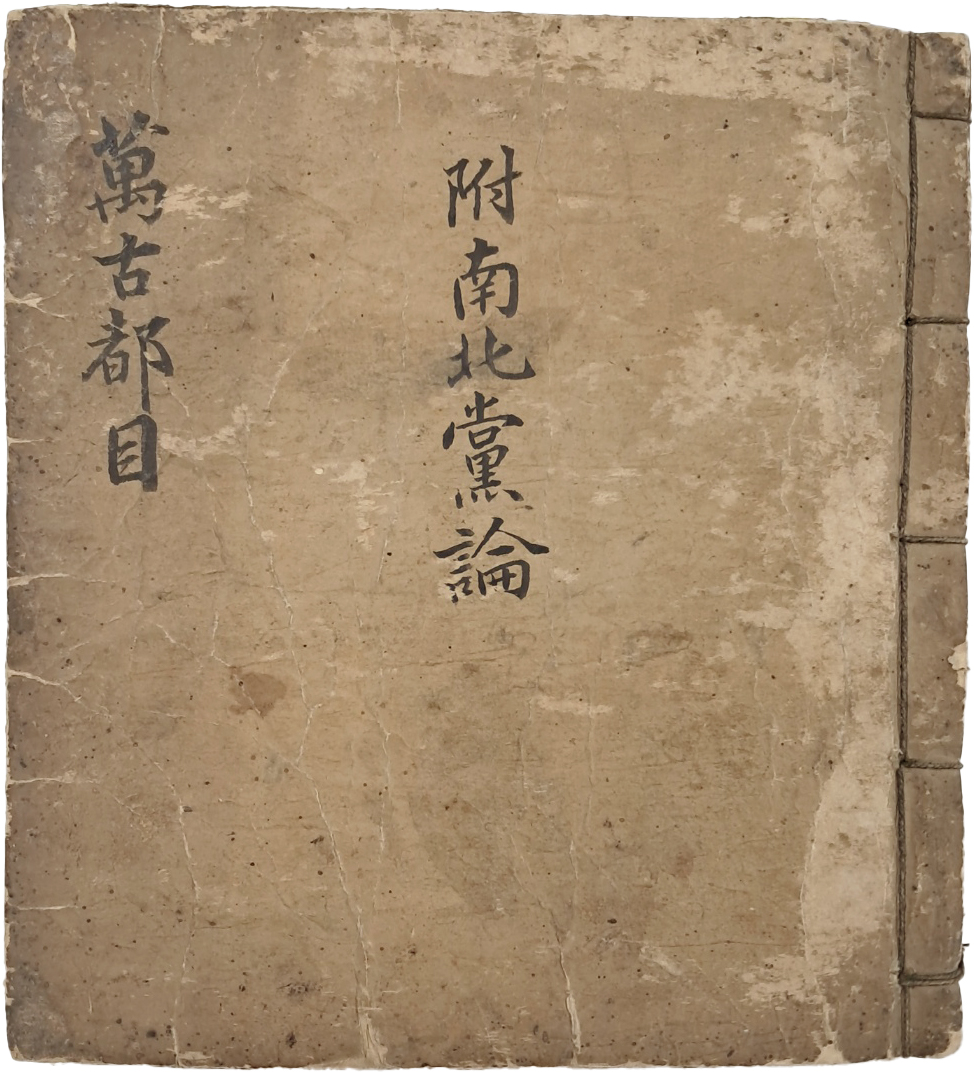 附南北黨論
萬古都目